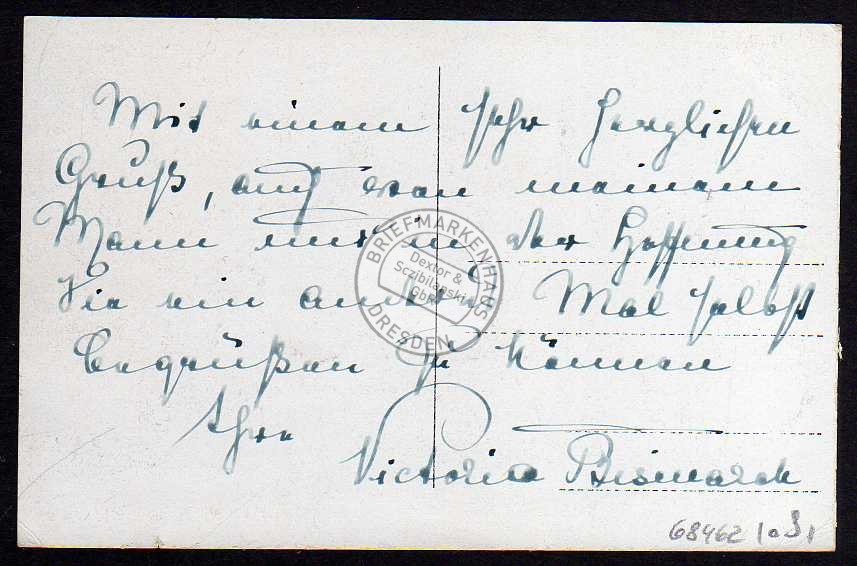 Mit einem sehr herzlichen
Gruß, auch von meinem
Mann und in der Hoffnung
Sie ein anderes Mal selbst
begrüßen zu können
Ihre
Victoria Bismarck
BRIEFMARKENHAUS
Dextor &
Sczibilanski
GbR
DRESDEN
68462